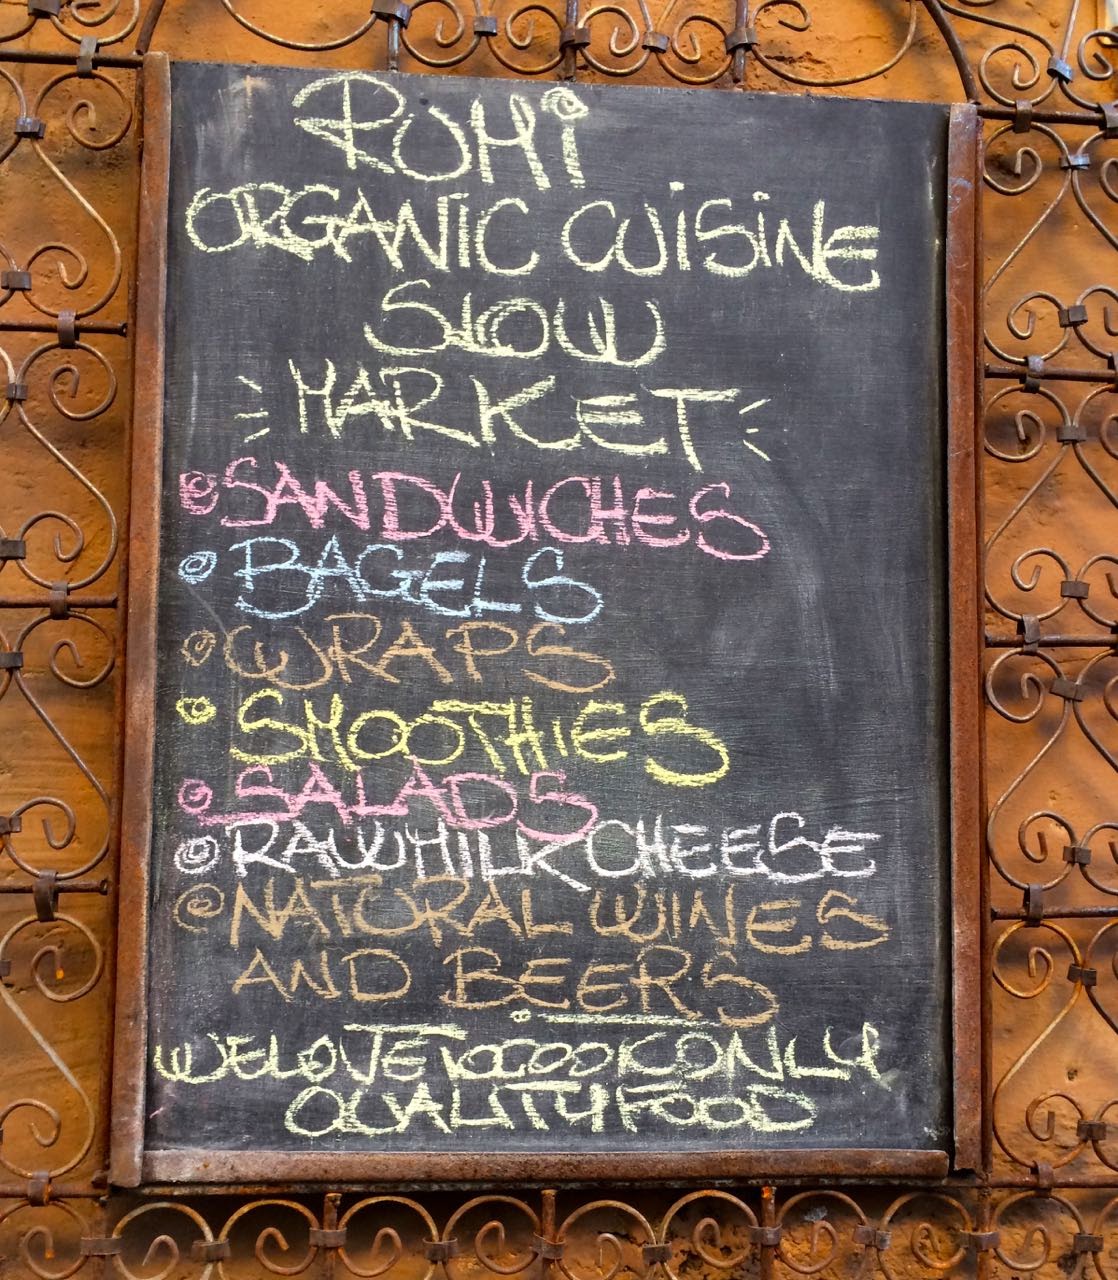 RUMi
ORGANIC CUiSiNE
SLOW
MARKET
SANDWICHES
BAGELS
WRAPS
SMOOTHIES
SALADS
RAWMILK CHEESE
NATURAL WINES
AND BEERS
WE LOVE TO COOK ONLY
QUALITY FOOD